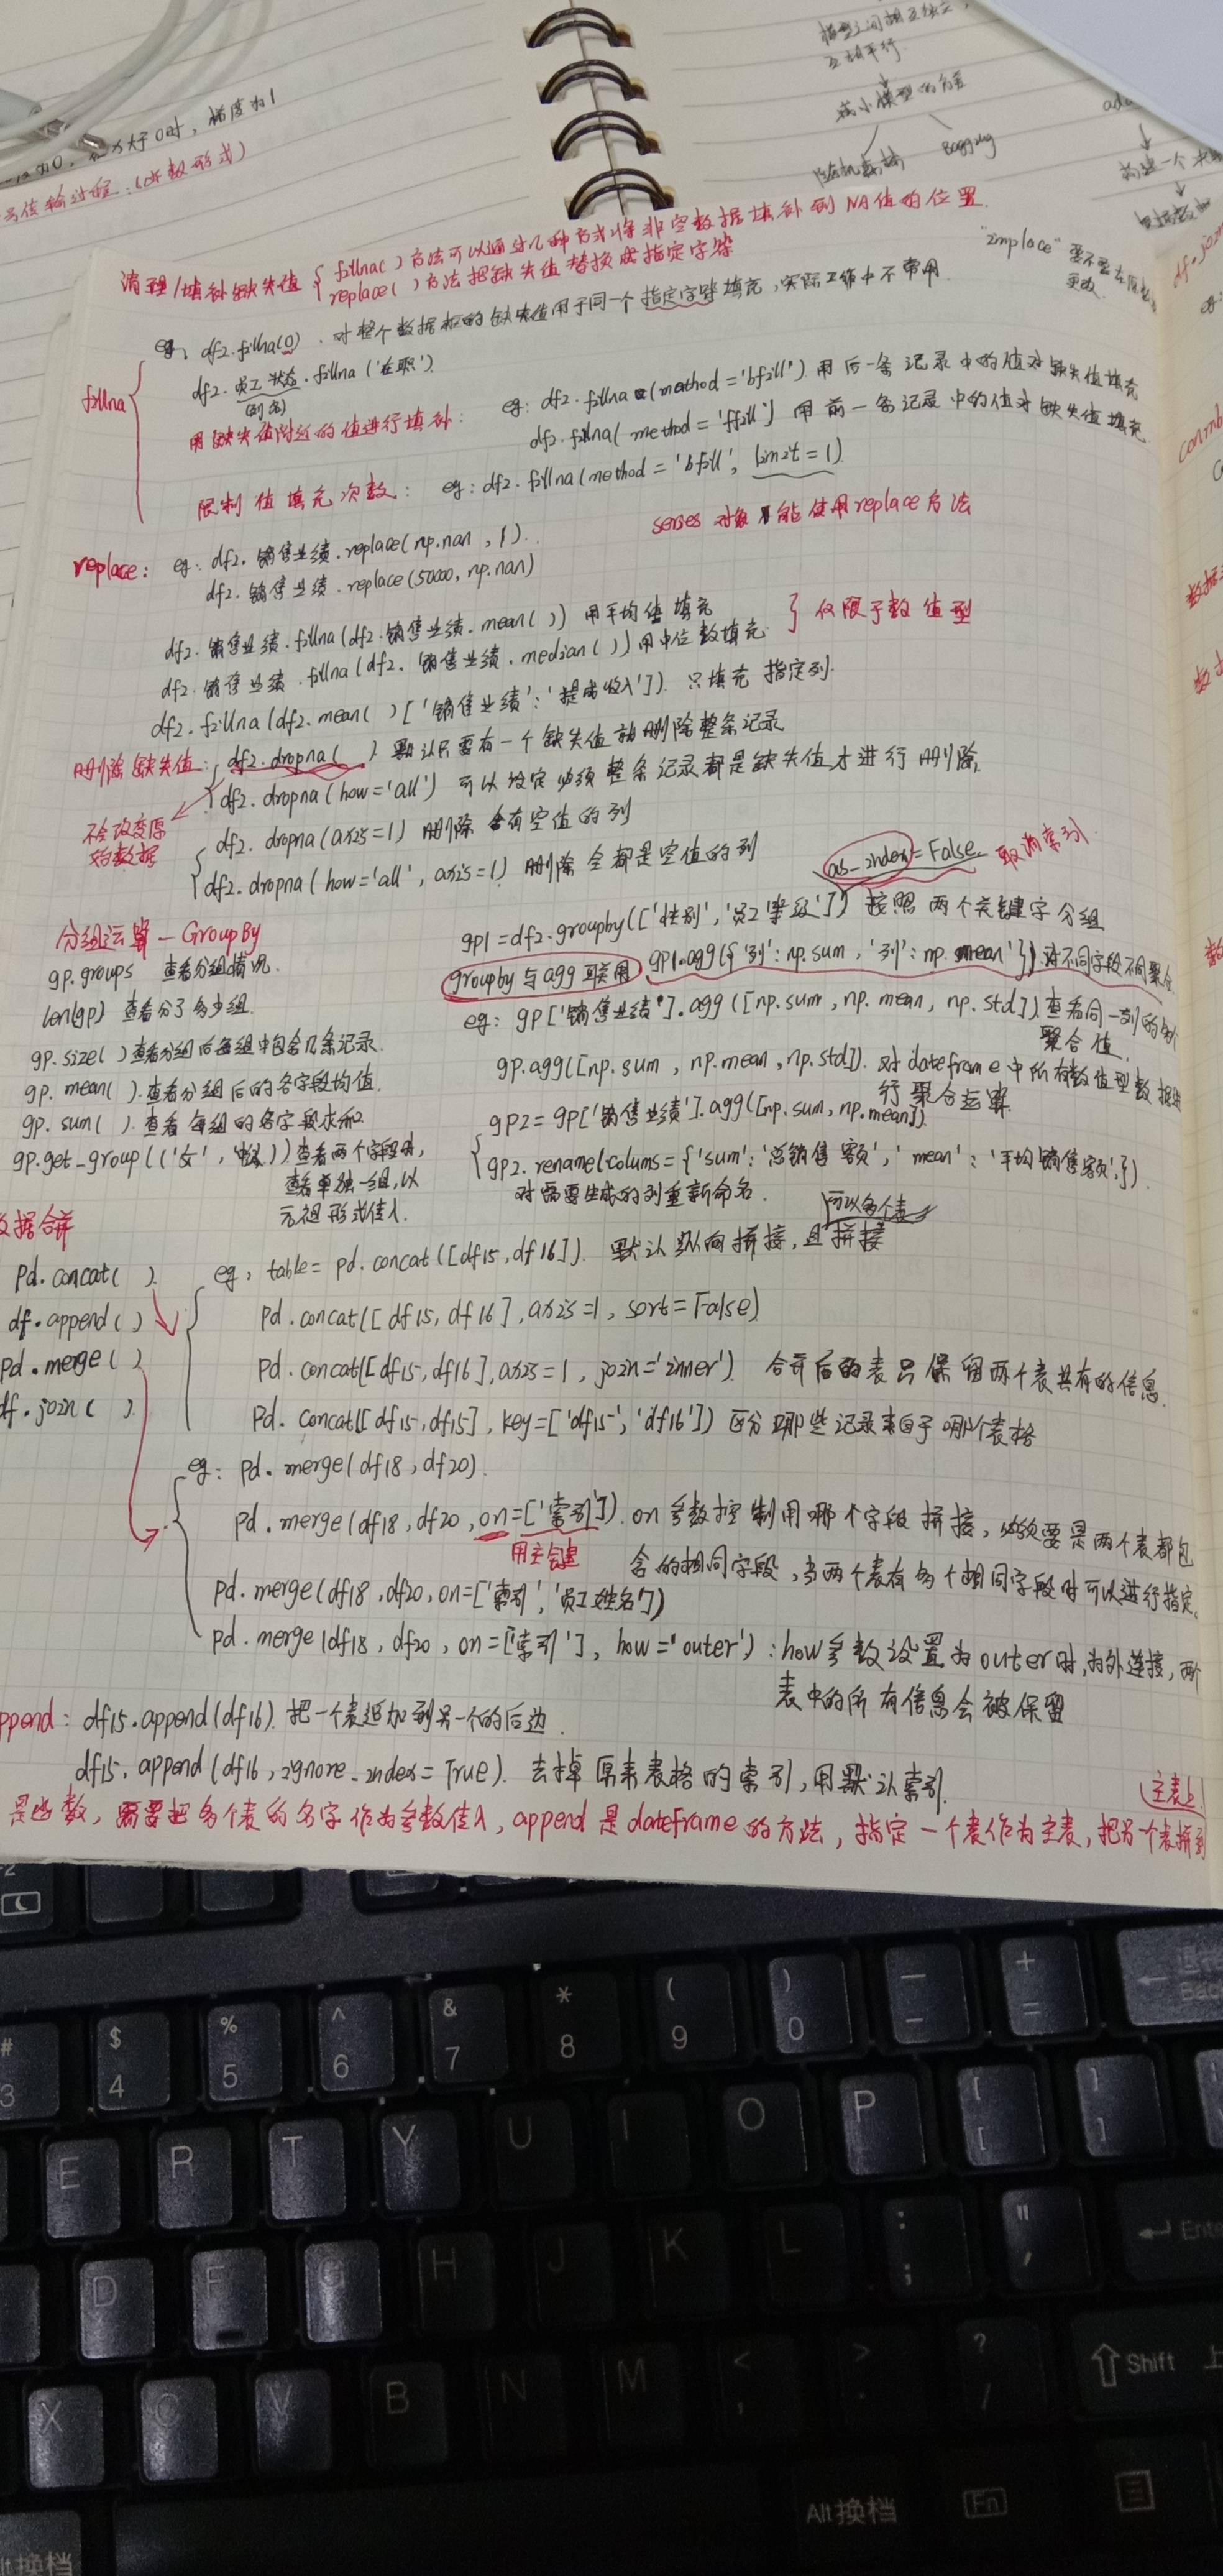 模型之间相互独立，
互相平行
减小模型的方差
随机森林
Bagging
大于0时，梯度为1
号传输过程：(函数形式)
构建一个
清理/填补缺失值 { fillna( )方法可以通过几种方式将非空数据填补到NA值的位置.
replace( )方法把缺失值替换成指定字符
"inplace" 要不要在
更改.
fillna
eg, df2.fillna(0) . 对整个数据框的缺失值用于同一个指定字符填充，实际工作中不常用.
df2.员工状态.fillna('在职').
(列名)
用缺失值附近的值进行填补：
eg: df2.fillna(method='bfill') 用后一条记录中的值对缺失值填充
df2.fillna( method='ffill') 用前一条记录中的值对缺失值填充
限制值填充次数： eg: df2.fillna(method='bfill', limit=1)
series 对象 能使用replace方法
replace: eg: df2.销售业绩.replace(np.nan , 1)
df2.销售业绩.replace(50000, np.nan)
df2.销售业绩.fillna(df2.销售业绩.mean( )) 用平均值填充
df2.销售业绩.fillna(df2.销售业绩.median( )) 用中位数填充. } 仅限于数值型
df2.fillna(df2.mean( )['销售业绩':'提成收入']) 只填充指定列.
删除缺失值: { df2.dropna( ) 默认只要有一个缺失值就删除整条记录
df2.dropna(how='all') 可以设定必须整条记录都是缺失值才进行删除.
不会改变原
始数据
{ df2.dropna(axis=1) 删除含有空值的列
df2.dropna(how='all', axis=1) 删除全都是空值的列
as_index=False 取消索引.
分组运算—GroupBy
gp1=df2.groupby(['性别','员工等级']) 按照两个关键字分组
gp.groups 查看分组情况.
groupby与agg联用 gp1.agg({'列': np.sum, '列': np.mean'}) 对不同字段不同聚合
len(gp) 查看分了多少组.
eg: gp['销售业绩'].agg([np.sum, np.mean, np.std]) 查看同一列的
聚合值.
gp.size( )查看分组后每组中包含几条记录.
gp.agg([np.sum , np.mean, np.std]). 对dateframe中所有数值型数据进
行聚合运算.
gp.mean( ).查看分组后的各字段均值.
gp.sum( ).查看每组的各字段求和.
{ gp2=gp['销售业绩'].agg([np.sum, np.mean])
gp.get_group(('女', )) 查看两个字段时,
查看单独一组,以
元祖形式传入.
gp2.rename(colums={'sum':'总销售额','mean':'平均销售额'})
对需要生成的列重新命名.
数据合并
可以多个表
pd.concat( )
eg, table= pd.concat([df15, df16]). 默认纵向拼接, 且拼接
df.append( )
pd.concat([df15, df16],axis=1, sort=False)
pd.merge( )
pd.concat([df15,df16],axis=1, join='inner') 合并后的表只保留两个表共有的信息.
df.join( )
pd.concat([df15,df15], key=['df15','df16']) 区分哪些记录来自于哪个表格
eg: pd.merge(df18,df20).
pd.merge(df18,df20,on=['索引']) on参数控制用哪个字段拼接,必须要是两个表都包
用主键
含的相同字段,当两个表有多个相同字段时可以进行指定.
pd.merge(df18,df20,on=['索引','员工姓名'])
pd.merge(df18, df20, on=['索引'], how='outer') : how参数设置为outer时,为外连接,两个
表中的所有信息会被保留
append: df15.append(df16) 把一个表追加到另一个的后边.
df15.append(df16,ignore_index=True). 去掉原来表格的索引,用默认索引.
主表上
是函数, 需要把多个表的名字作为参数传入, append是dateframe的方法, 指定一个表作为主表, 把另一个表拼到
# 3
$ 4
% 5
^ 6
& 7
* 8
( 9
) 0
— -
+ =
E R T Y U I O P [ ]
D F G H J K L : ; " '
Enter
X C V B N M < , > . ? /
Shift
Alt换档
Fn
Alt换档